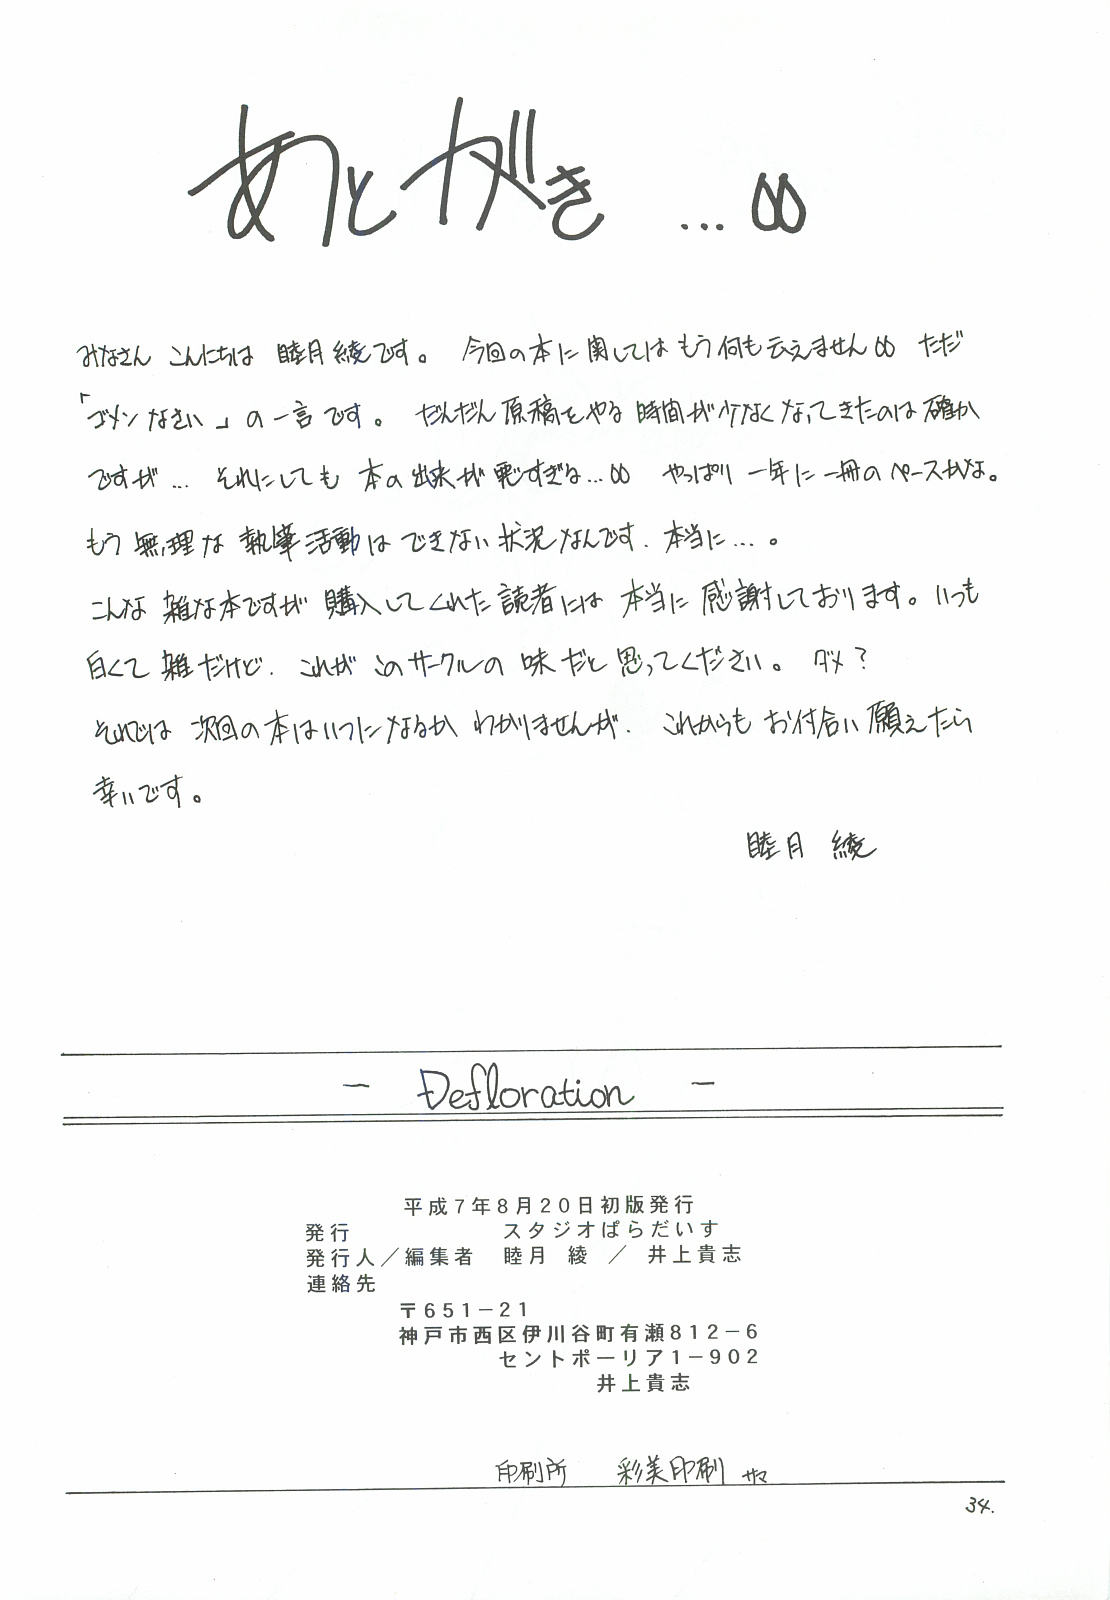 あとがき …
みなさん こんにちは 睦月綾です。 今回の本に関してはもう何も云えません ただ
「ゴメンなさい」の一言です。 だんだん原稿をやる時間が少なくなってきたのは確か
ですが… それにしても本の出来が悪すぎる… やっぱり一年に一冊のペースかな。
もう無理な執筆活動はできない状況なんです、本当に…。
こんな雑な本ですが購入してくれた読者には本当に感謝しております。いつも
白くて雑だけど、これがこのサークルの味だと思ってください。 ダメ?
それでは次回の本はいつになるかわかりませんが、これからもお付合い願えたら
幸いです。
睦月 綾
― Defloration ―
平成7年8月20日初版発行
発行 スタジオぱらだいす
発行人/編集者 睦月 綾 / 井上貴志
連絡先
〒651-21
神戸市西区伊川谷町有瀬812-6
セントポーリア1-902
井上貴志
印刷所 彩美印刷 サマ
34.